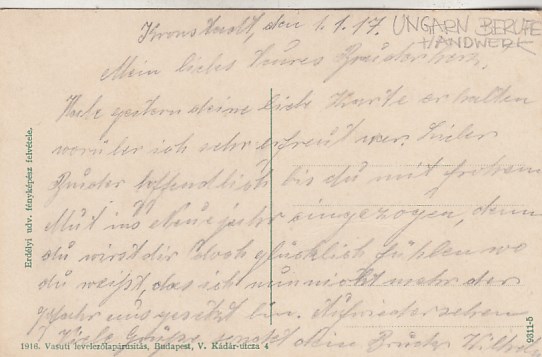 Kronstadt, den 1.1.17.
UNGARN BERUFE
HANDWERK
Mein liebes teures Bruderherz.
Habe gestern deine liebe Karte erhalten
worüber ich sehr erfreut war. Lieber
Bruder hoffendlich bis du mit frohem
Mut ins Neue jahr eingezogen, denn
du wirst dir doch glücklich fühlen wo
du weißt, das ich nun nicht mehr der
gefahr ausgesetzt bin. Aufwiedersehen
Grüße sendet dein Bruder
Erdélyi udv. fényképész felvétele.
1916. Vasuti levelezőlapárusitás, Budapest, V. Kádár-utcza 4
9311-5